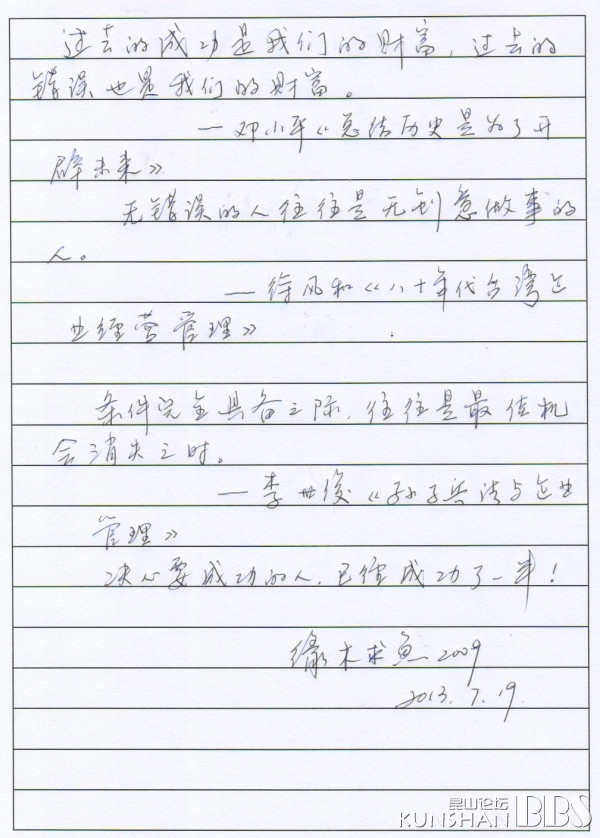 过去的成功是我们的财富，过去的
错误也是我们的财富。
—邓小平《总结历史是为了开
辟未来》
无错误的人往往是无创意做事的
人。
—徐风和《八十年代台湾企
业经营管理》
条件完全具备之际，往往是最佳机
会消失之时。
—李世俊《孙子兵法与企业
管理》
决心要成功的人，已经成功了一半！
缘木求鱼2009
2013.7.19.
昆山论坛
KUNSHAN BBS